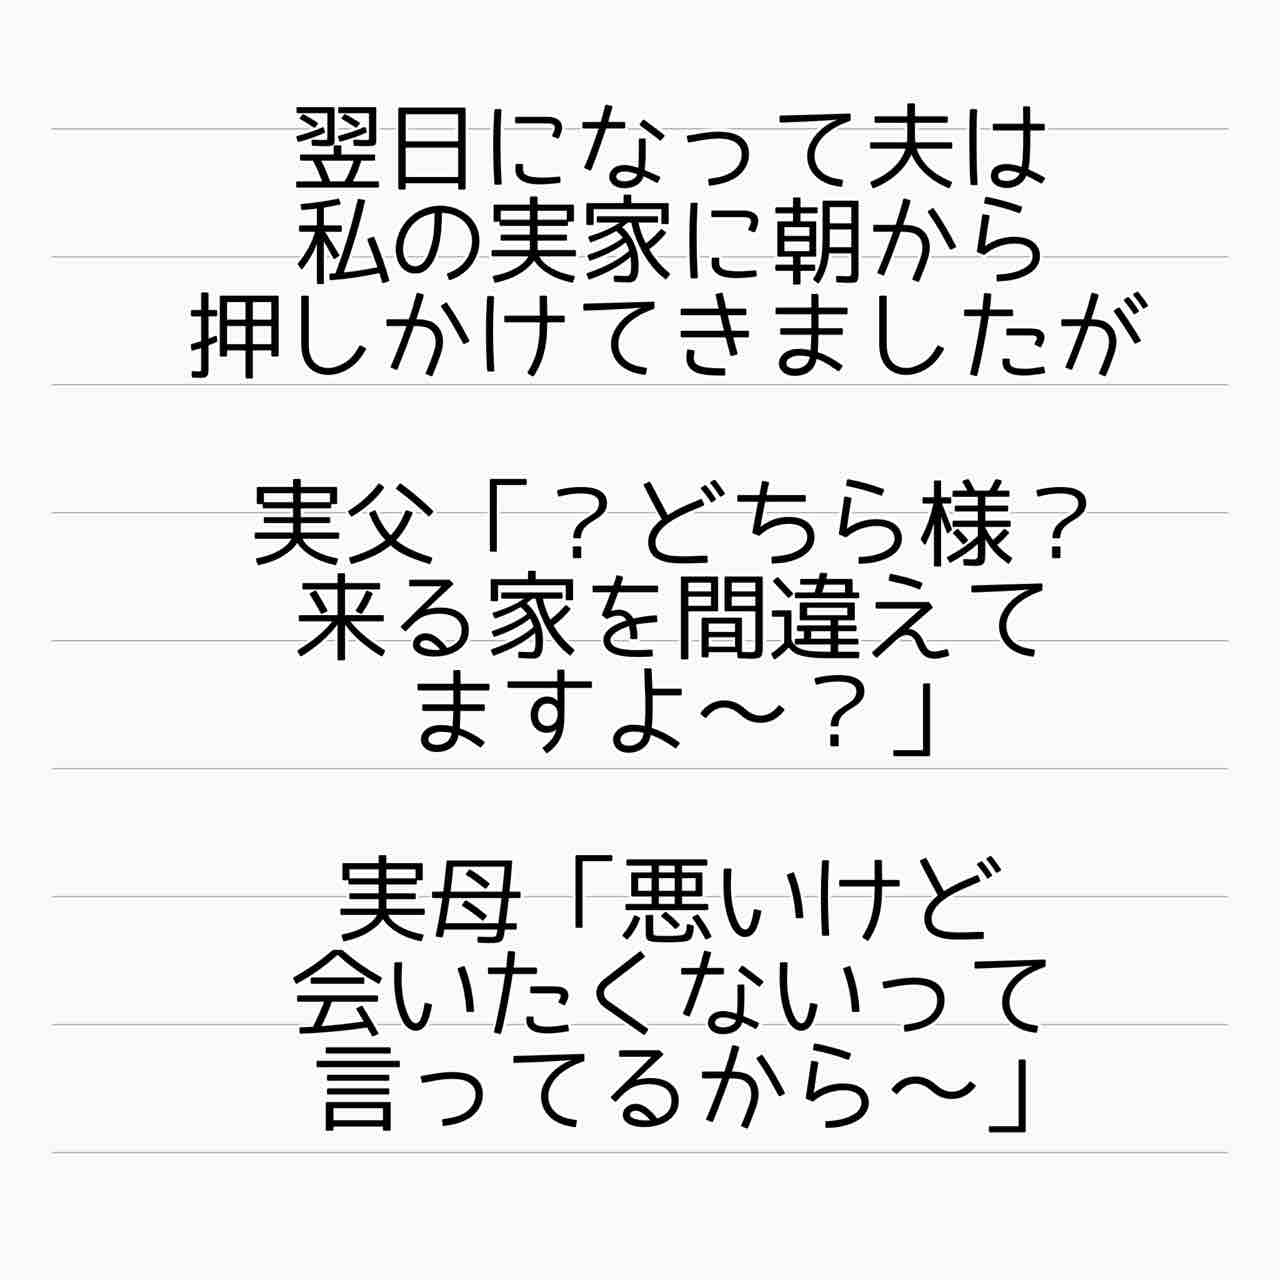 翌日になって夫は
私の実家に朝から
押しかけてきましたが
実父「？どちら様？
来る家を間違えて
ますよ〜？」
実母「悪いけど
会いたくないって
言ってるから〜」